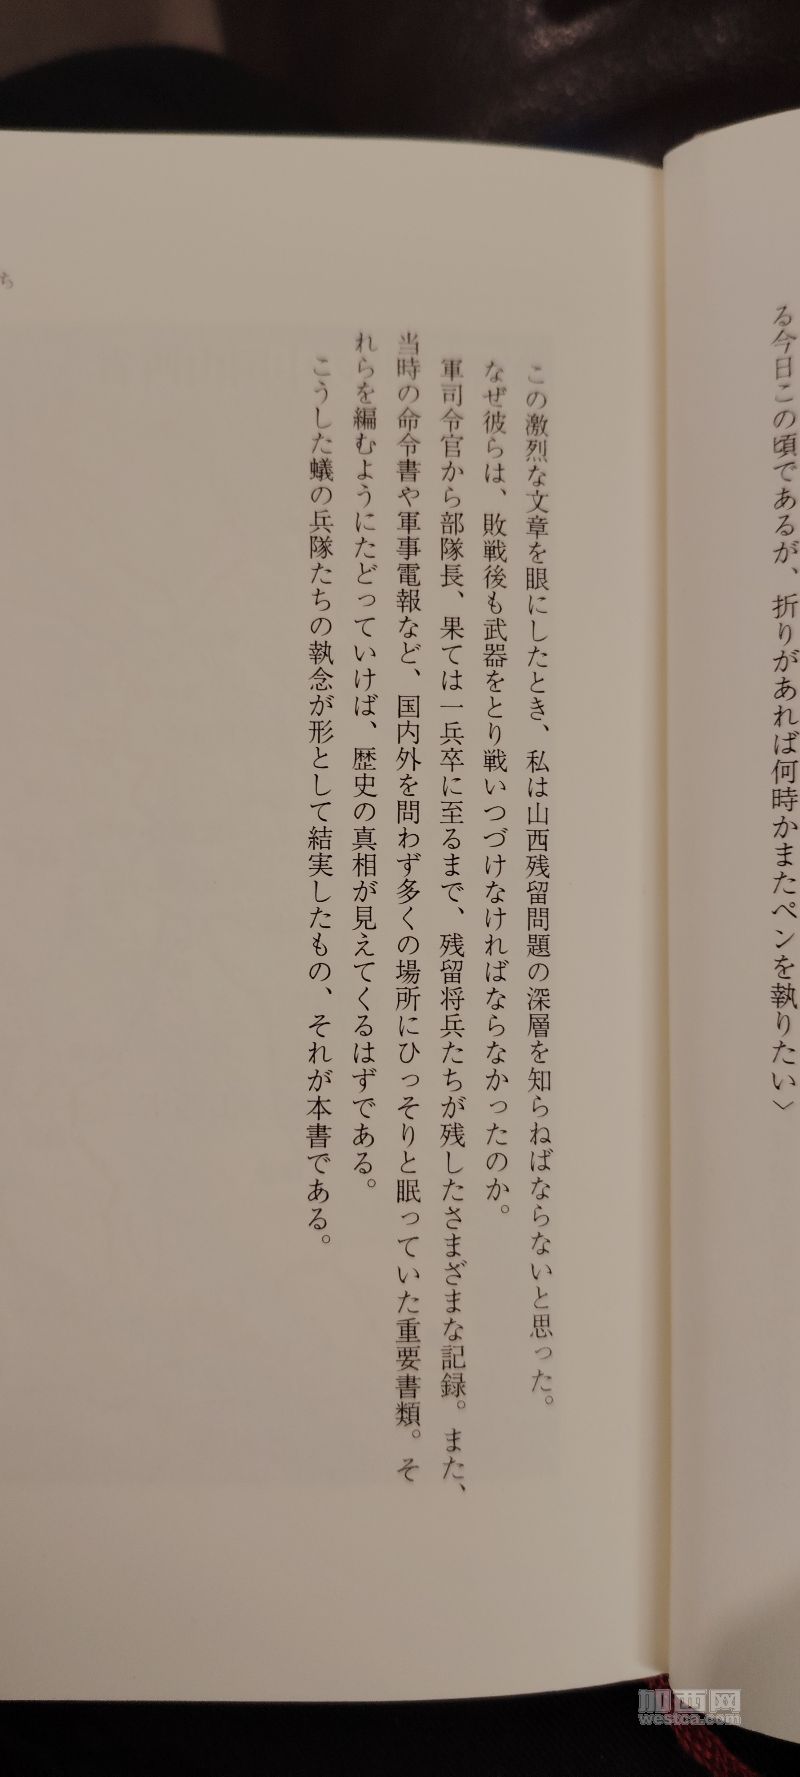 る今日この頃であるが、折りがあれば何時かまたペンを執りたい〉
この激烈な文章を眼にしたとき、私は山西残留問題の深層を知らねばならないと思った。
なぜ彼らは、敗戦後も武器をとり戦いつづけなければならなかったのか。
軍司令官から部隊長、果ては一兵卒に至るまで、残留将兵たちが残したさまざまな記録。また、
当時の命令書や軍事電報など、国内外を問わず多くの場所にひっそりと眠っていた重要書類。そ
れらを編むようにたどっていけば、歴史の真相が見えてくるはずである。
こうした蟻の兵隊たちの執念が形として結実したもの、それが本書である。
ち
加西网
westca.com